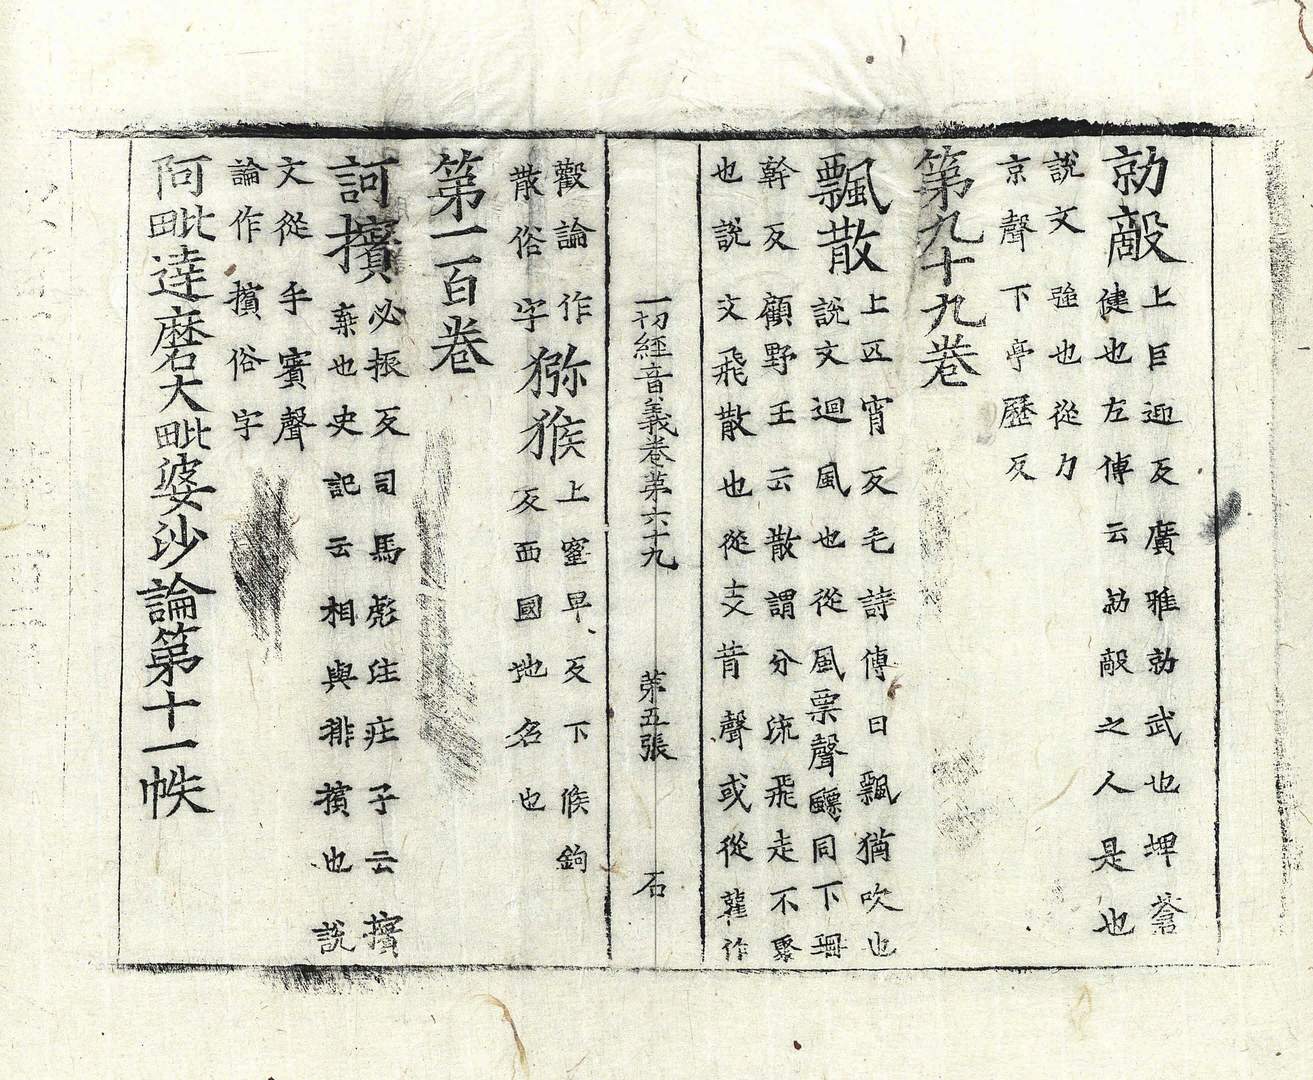 勍敵
上巨迎反廣雅勍武也埤蒼
健也左傳云勍敵之人是也
說文強也從力
京聲下亭歷反
第九十九卷
飄散
上匹宵反毛詩傳曰飄猶吹也
說文迴風也從風票聲飃同下珊
幹反顧野王云散謂分流飛走不聚
也說文飛散也從攵昔聲或從雚作
一切經音義卷第六十九 第五張 石
歡論作
散俗字
猕猴
上蜜早反下候鉤
反西國地名也
第一百卷
訶擯
必振反司馬彪注莊子云擯
棄也史記云相與排擯也說
文從手賓聲
論作擯俗字
阿毗達磨大毗婆沙論第十一帙